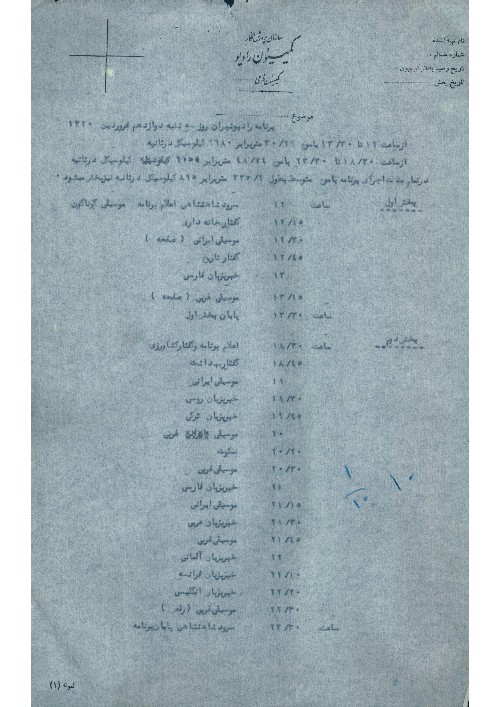 سازمان پرورش افکار
کمیسیون رادیو
نام نویسنده
تاریخ پخش
موضوع
برنامه رادیو تهران روز سه شنبه دوازدهم فروردین ۱۳۲۰
از ساعت ۱۲ تا ۱۳/۳۰ با موج کیلوسیکل در ثانیه
از ساعت ۱۸/۳۰ تا ۲۳/۳۰ با موج ۴۸/۷۴ متر برابر کیلوسیکل در ثانیه
در تمام مدت اجرای برنامه با موج متوسط بطول متر برابر ۸۹۵ کیلوسیکل در ثانیه نیز پخش میشود
پخش اول ساعت ۱۲ سرود شاهنشاهی اعلام برنامه موسیقی گوناگون
۱۲/۱۵ گفتار خانه داری
۱۲/۳۰ موسیقی ایرانی ( صفحه )
۱۲/۴۵ گفتار تاریخ
۱۳ خبر بزبان فارسی
۱۳/۱۵ موسیقی غربی ( صفحه )
ساعت ۱۳/۳۰ پایان پخش اول
پخش دوم ساعت ۱۸/۳۰ اعلام برنامه و گفتار کشاورزی
۱۸/۴۵ گفتار بهداشت
۱۹ موسیقی ایرانی
۱۹/۳۰ خبر بزبان روسی
۱۹/۴۵ خبر بزبان ترکی
۲۰ موسیقی غربی
۲۰/۲۰ سکوت
۲۰/۳۰ موسیقی غربی
۲۱ خبر بزبان فارسی
۲۱/۱۵ موسیقی ایرانی
۲۱/۳۰ خبر بزبان عربی
۲۱/۴۵ موسیقی غربی
۲۲ خبر بزبان آلمانی
۲۲/۱۰ خبر بزبان فرانسه
۲۲/۲۰ خبر بزبان انگلیسی
۲۲/۳۰ موسیقی غربی ( رقص )
ساعت ۲۳/۳۰ سرود شاهنشاهی پایان برنامه
۱
۱۵
۱۰
نمونه (۱)